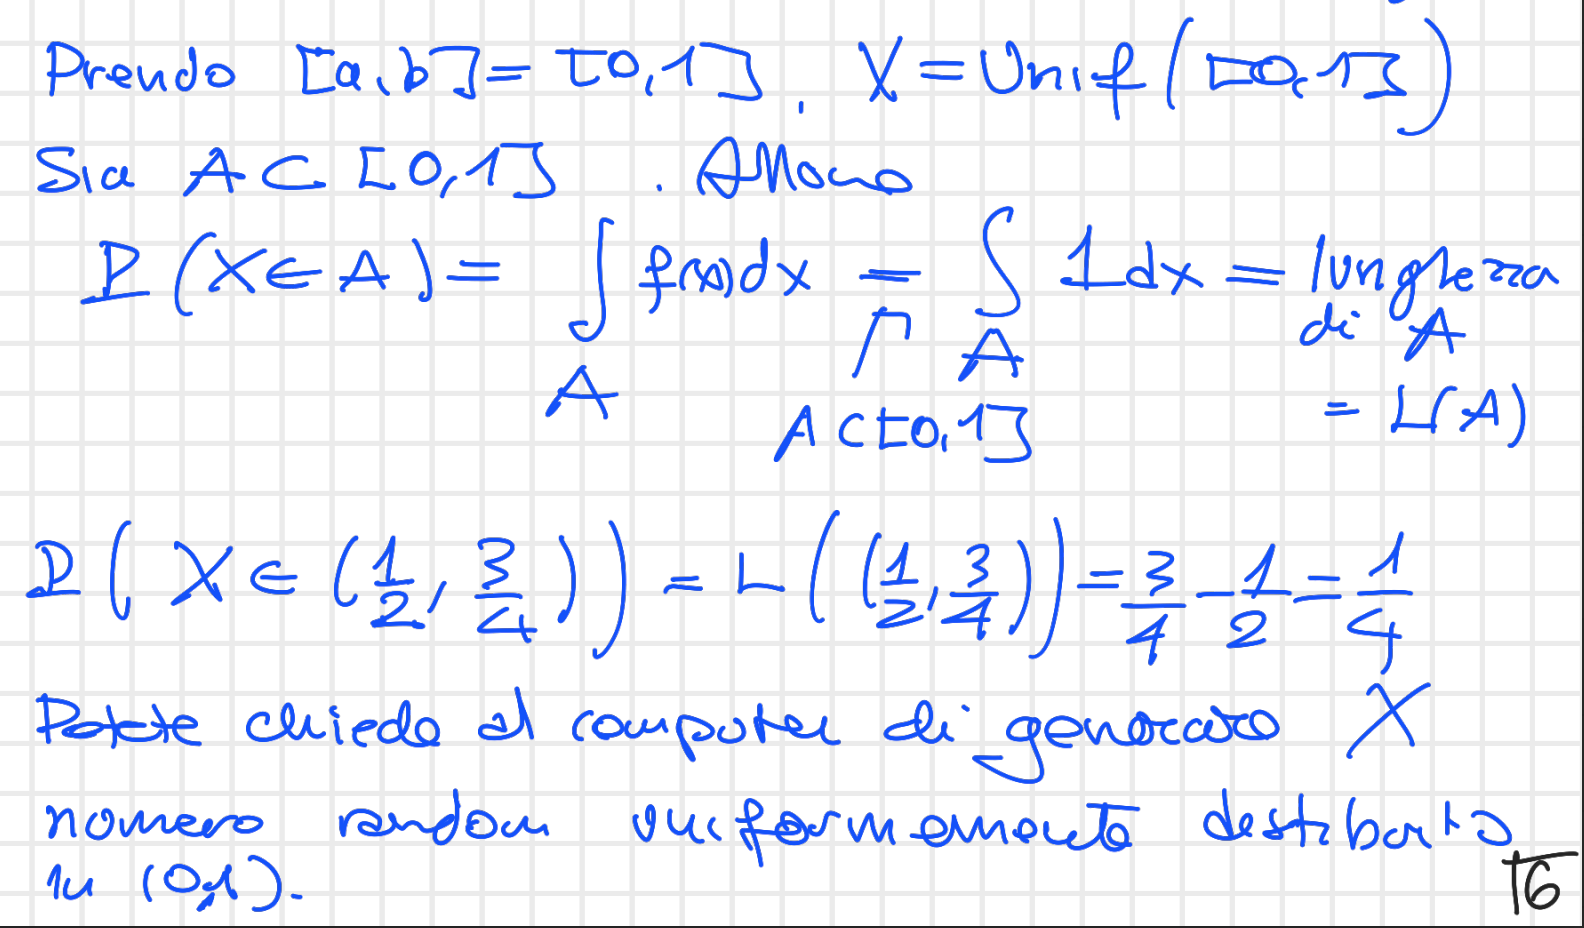 Prendo [a,b]=[0,1]. X=Unif([0,1])
Sia A⊂[0,1]. Allora
P(X∈A)=∫_A f(x)dx = ∫_A 1dx = lunghezza
di A
A⊂[0,1]
= L(A)
P(X∈(1/2, 3/4)) = L((1/2, 3/4)) = 3/4 - 1/2 = 1/4
Potete chiede al computer di generare X
numero random uniformemente destributo
in (0,1).
16